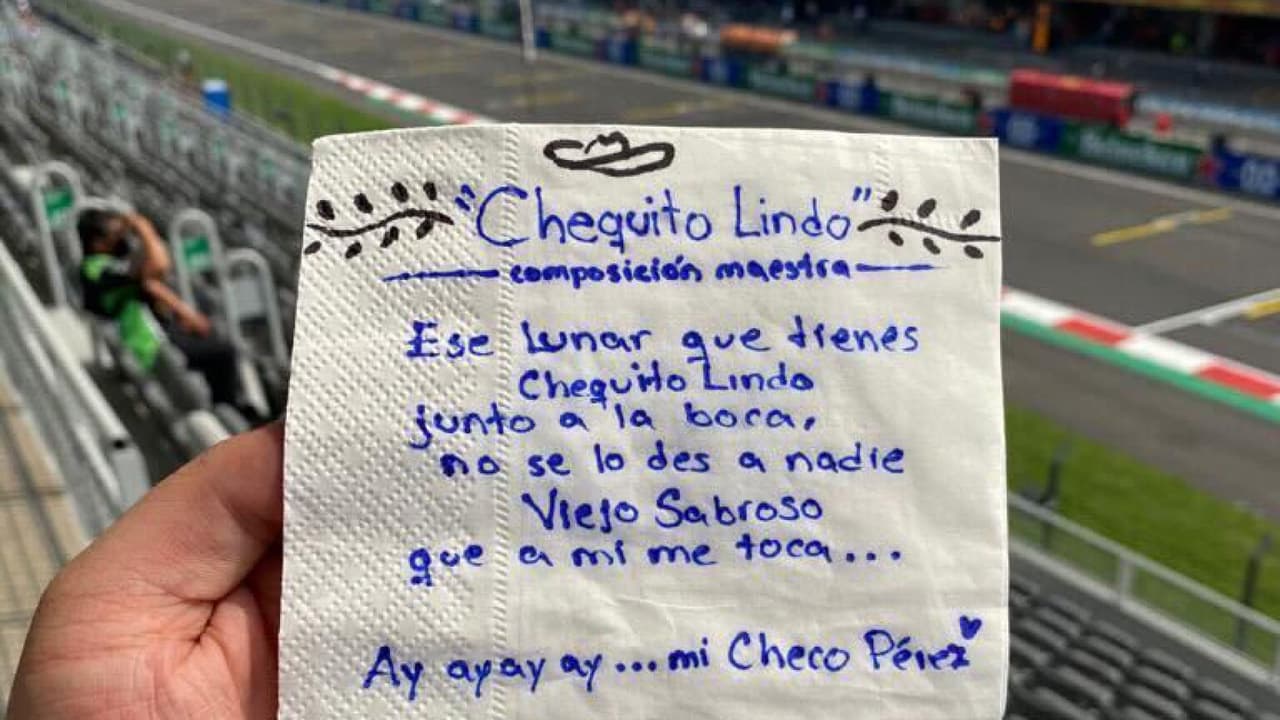 "Chequito Lindo"
composición maestra
Ese lunar que tienes
Chequito Lindo
junto a la boca,
no se lo des a nadie
Viejo Sabroso
que a mí me toca...
Ay ay ay ay...mi Checo Pérez
Heineken